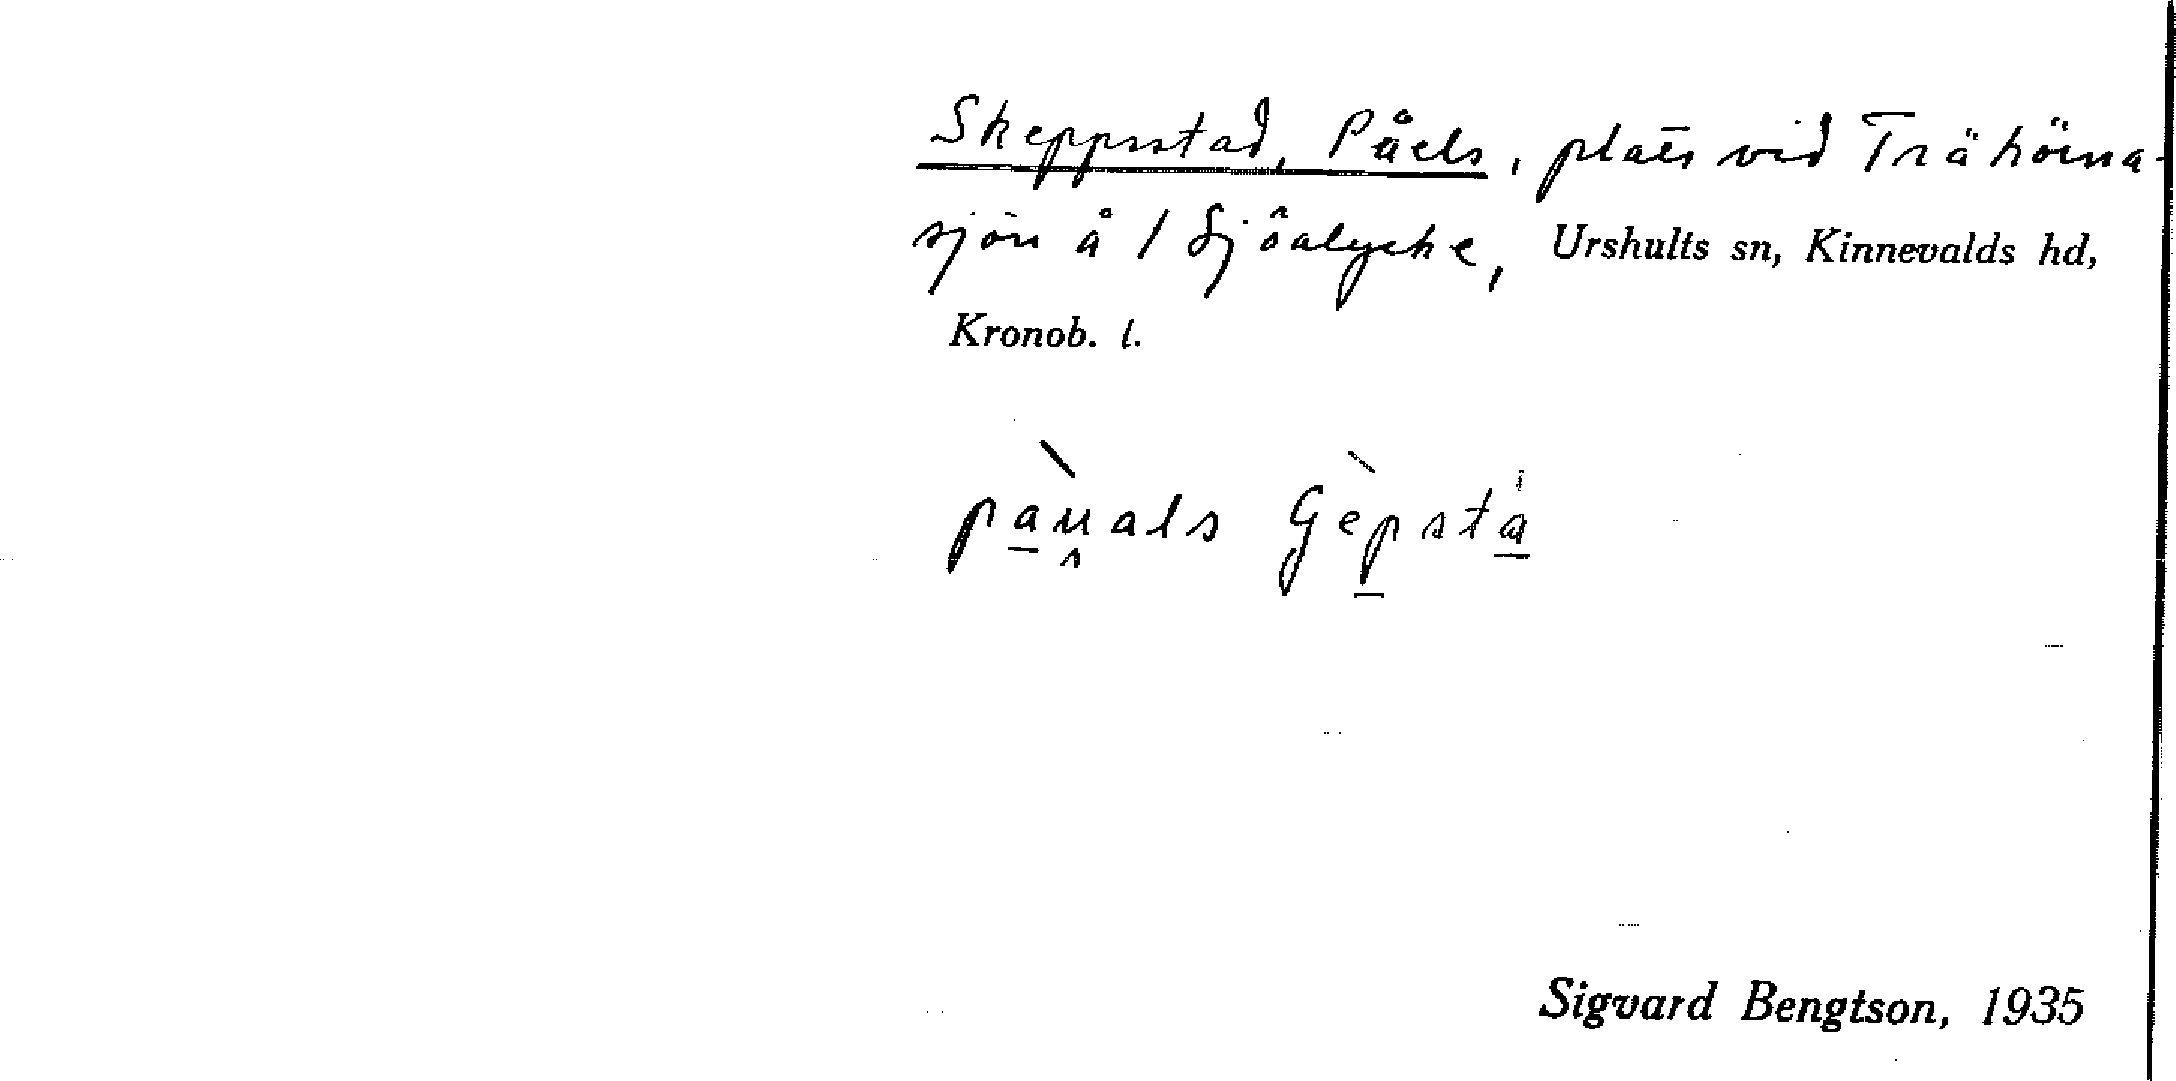 Skeppsstad, Påels, plats vid Trähörna-
sjön å / Sjöalycke, Urshults sn, Kinnevalds hd,
Kronob. l.
Sigvard Bengtson, 1935